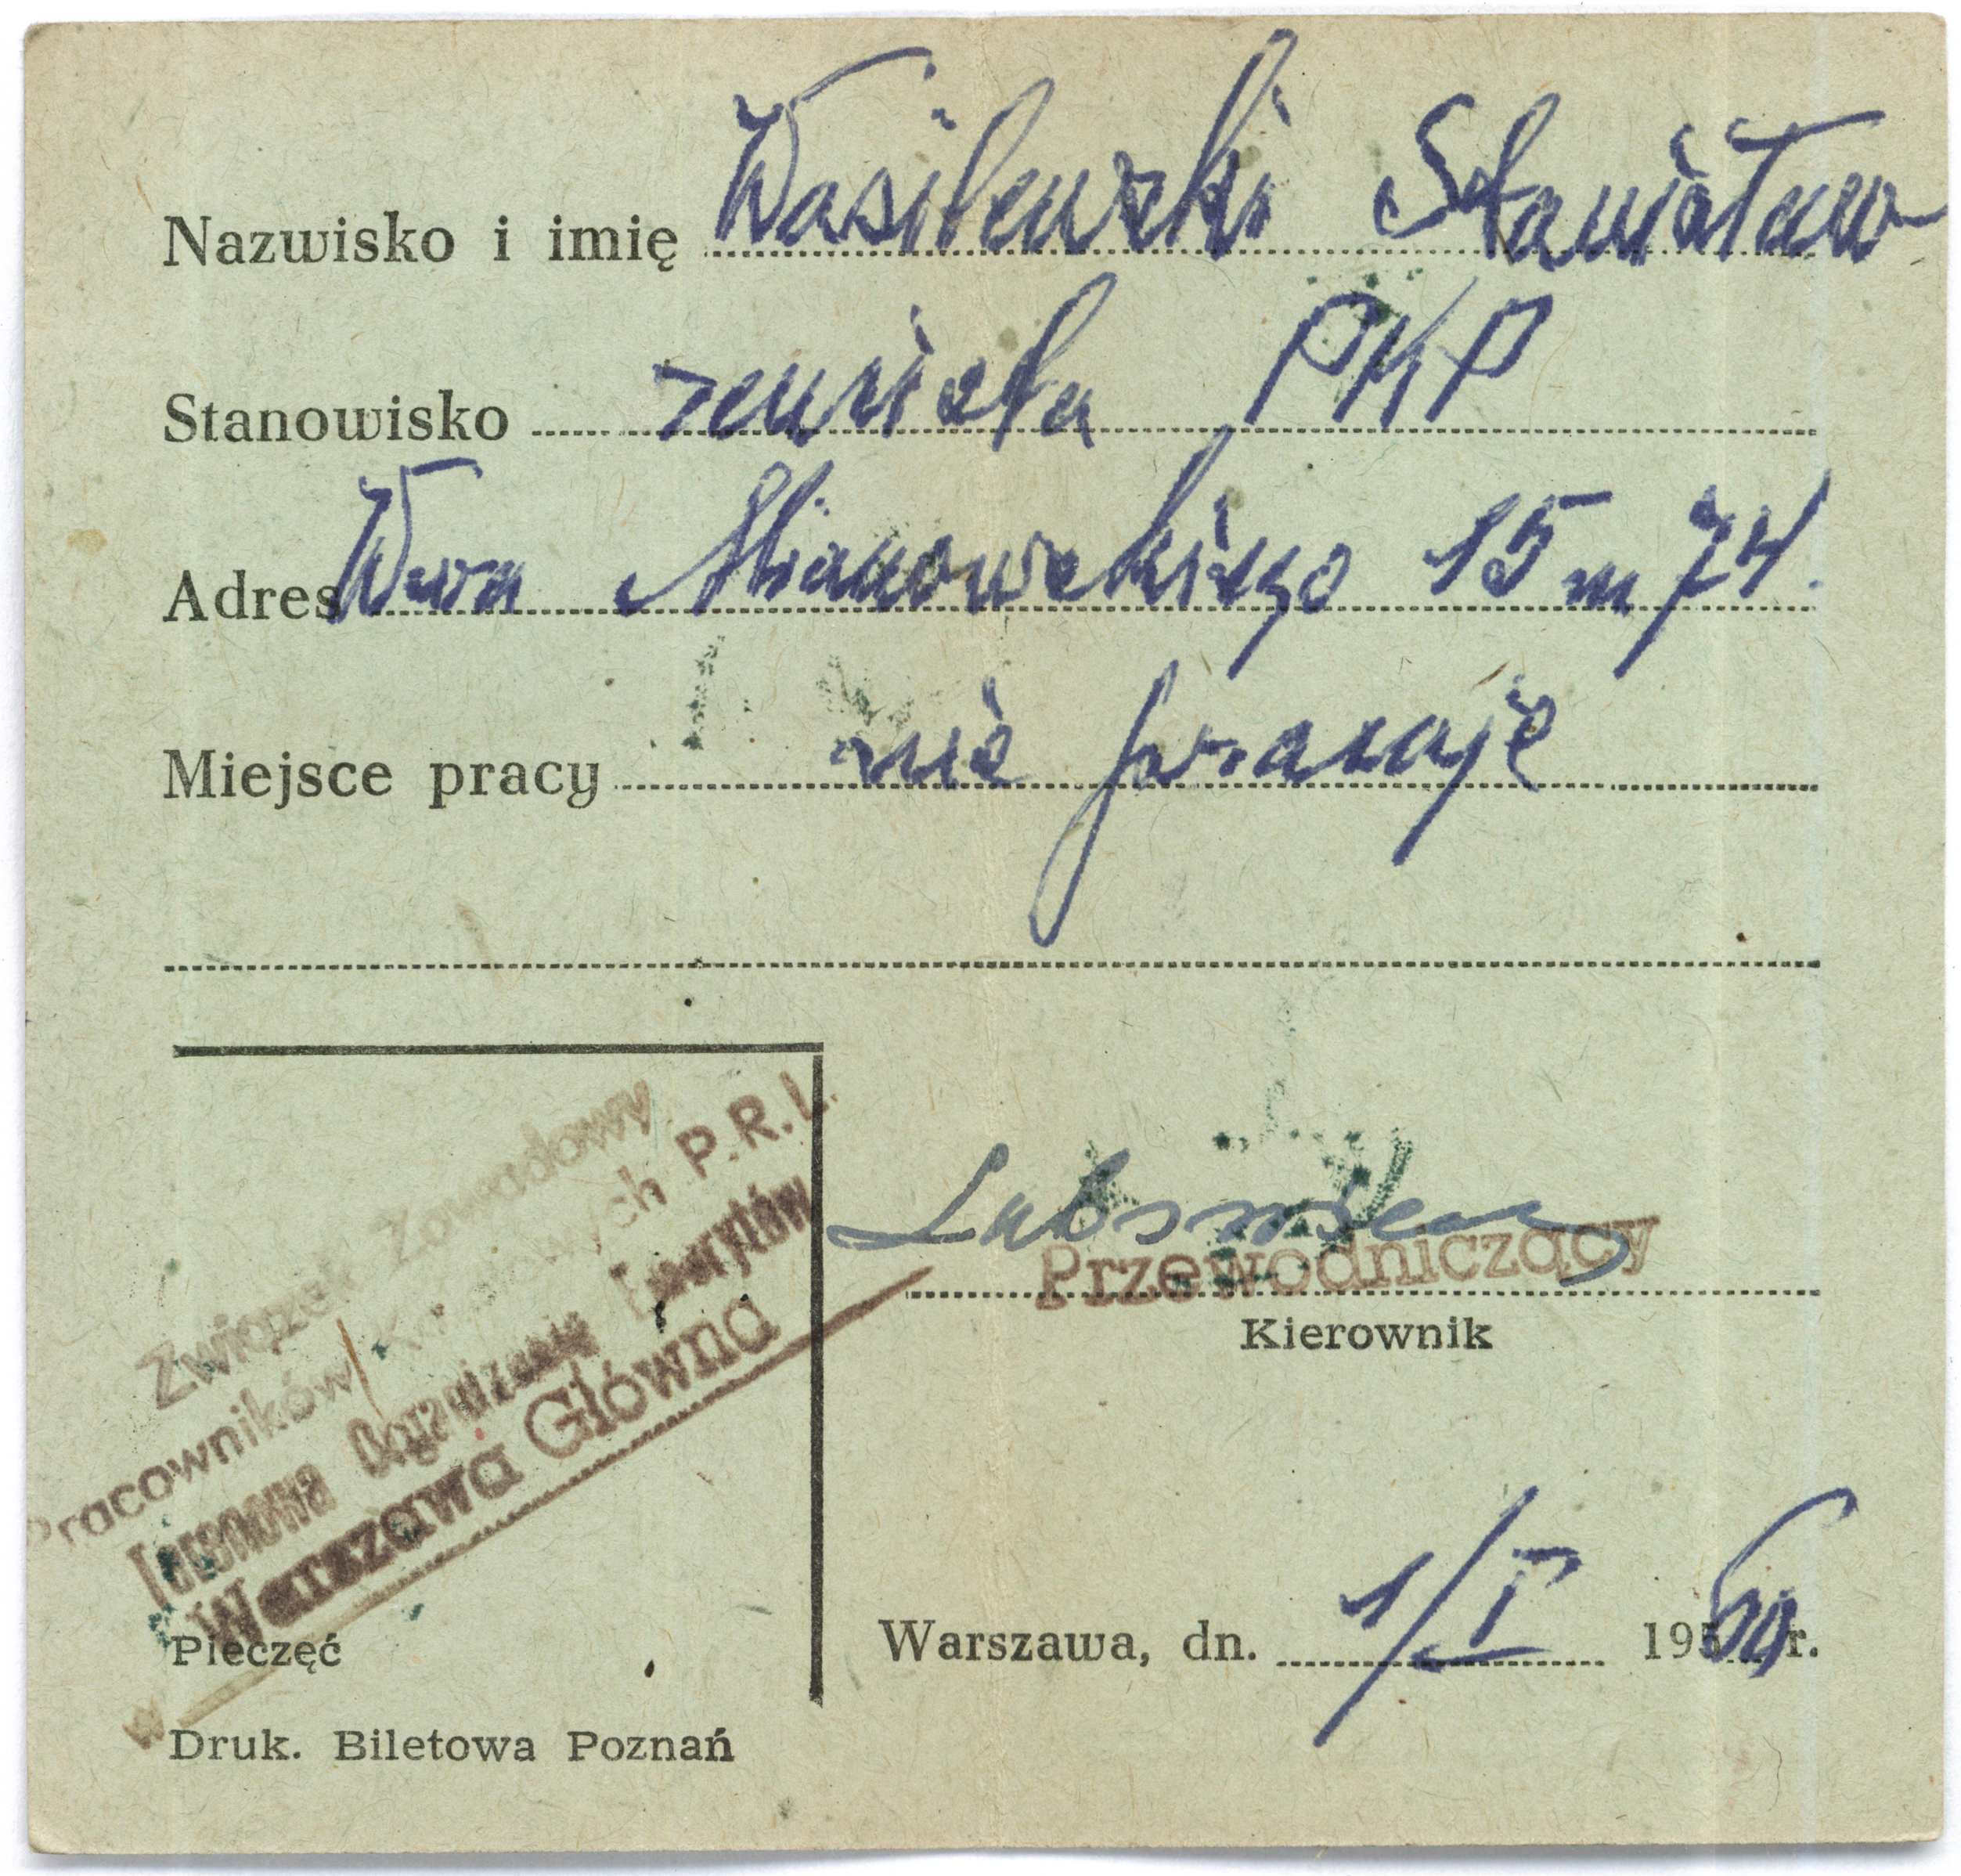 Nazwisko i imię Wasilewski Stanisław
Stanowisko rencista PKP
Adres Wwa Mianowskiego 15 m 74.
Miejsce pracy nie pracuje
Związek Zawodowy
Pracowników Kolejowych P.R.L.
Terenowa Organizacja Emerytów
Warszawa Główna
w
Pieczęć
Przewodniczący
Kierownik
Warszawa, dn. 1/I 1960 r.
Druk. Biletowa Poznań